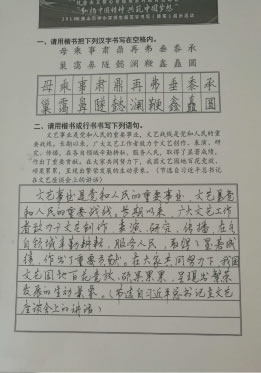 "和扬中国精神 共筑中国梦想"
一、请用楷书把下列汉字书写在空格内。
母乘事肃鼎再弗垂黍承
巢蔼鼻隧懿澜鞭鑫矗圆
母乘事肃鼎再弗垂黍承
巢蔼鼻隧懿澜鞭鑫矗圆
二、请用楷书或行书书写下列语句。
文艺事业是党和人民的重要事业，文艺战线是党和人民的重
要战线。长期以来，广大文艺工作者致力于文艺创作、表演、研
究、传播，在各自领域辛勤耕耘、服务人民，取得了显著成绩，
作出了重要贡献。在大家共同努力下，我国文艺园地百花竞放、
硕果累累，呈现出繁荣发展的生动景象。（节选自习近平总书记
在文艺座谈会上的讲话）
文艺事业是党和人民的重要事业，文艺是党
和人民的重要战线，长期以来，广大文艺工作
者致力于文艺创作、表演、研究、传播，在各
自领域辛勤耕耘、服务人民，取得了显著成
绩，作出了重要贡献。在大家共同努力下，我国
文艺园地百花竞放、硕果累累，呈现出繁荣
发展的生动景象。（节选自习近平总书记在文艺
座谈会上的讲话）